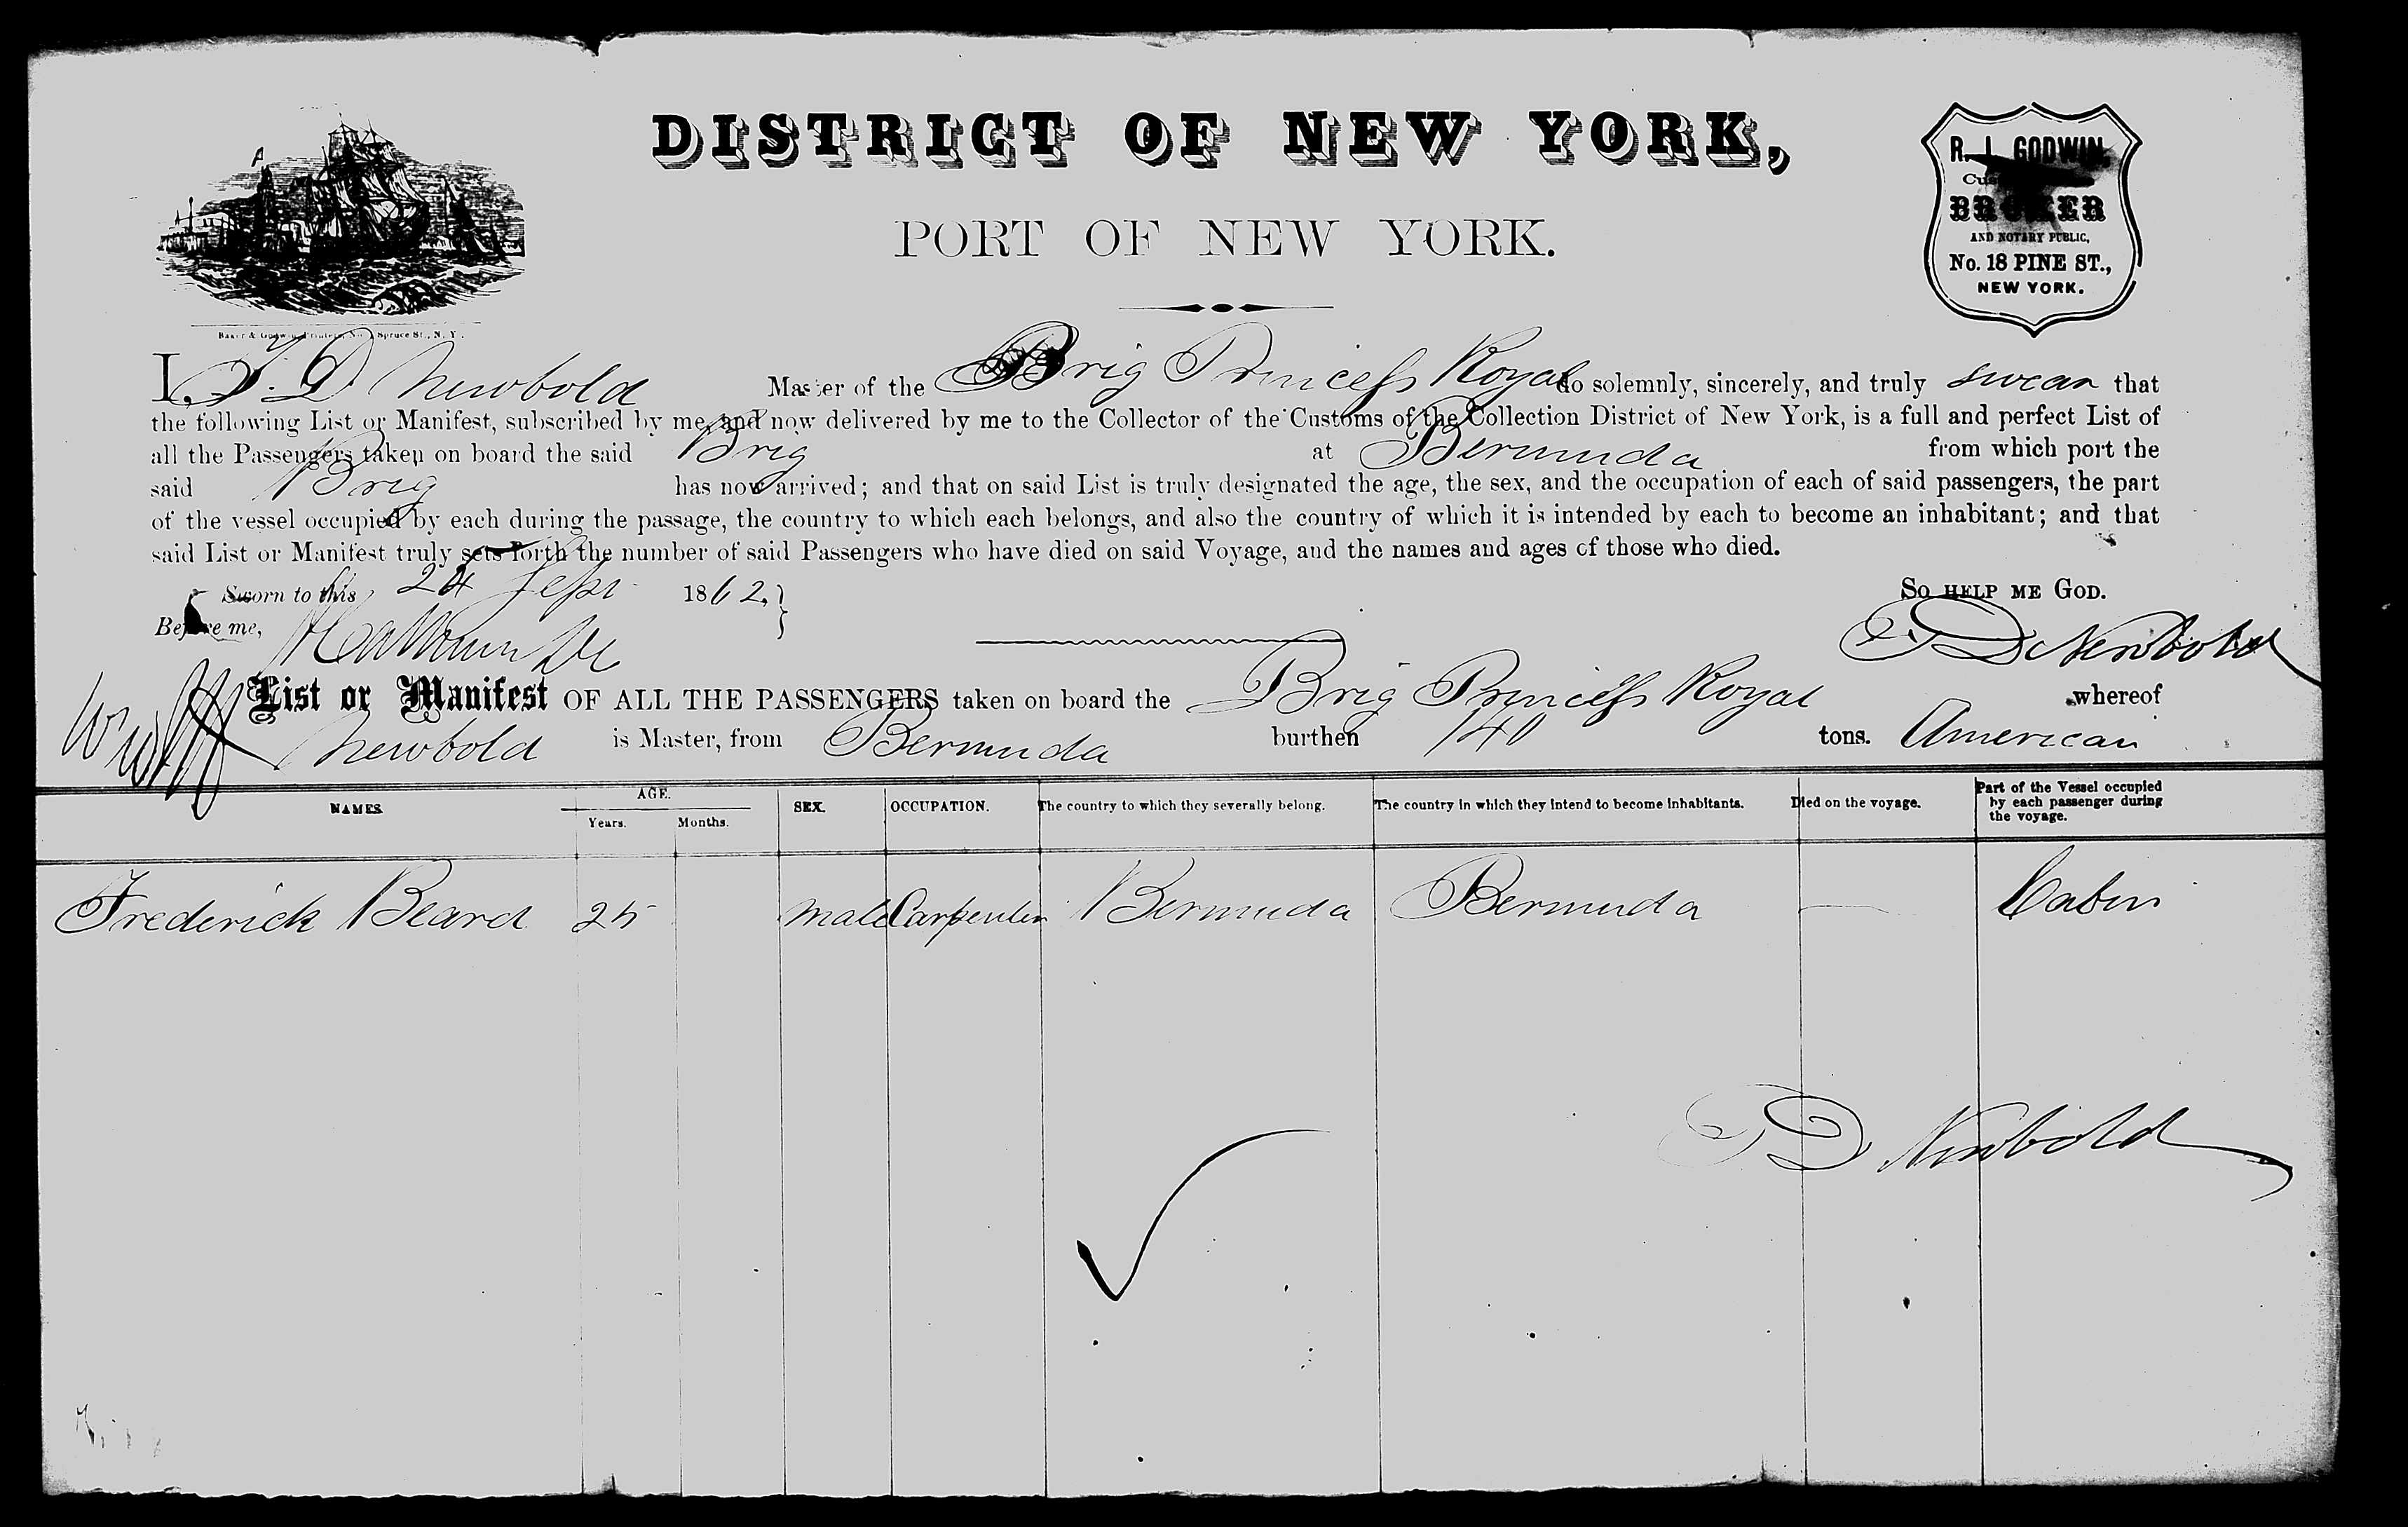 DISTRICT OF NEW YORK,
PORT OF NEW YORK.
R. L. GODWIN
BROKER
AND NOTARY PUBLIC,
No. 18 PINE ST.,
NEW YORK.
Baker & Godwin, Printers, No. 1 Spruce St., N. Y.
I, T. D. Newbold Master of the Brig Princess Royal do solemnly, sincerely, and truly swear that
the following List or Manifest, subscribed by me, and now delivered by me to the Collector of the Customs of the Collection District of New York, is a full and perfect List of
all the Passengers taken on board the said Brig at Bermuda from which port the
said Brig has now arrived; and that on said List is truly designated the age, the sex, and the occupation of each of said passengers, the part
of the vessel occupied by each during the passage, the country to which each belongs, and also the country of which it is intended by each to become an inhabitant; and that
said List or Manifest truly sets forth the number of said Passengers who have died on said Voyage, and the names and ages of those who died.
Sworn to this 24 Sept 1862, So HELP ME GOD.
Before me, T D Newbold
List or Manifest OF ALL THE PASSENGERS taken on board the Brig Princess Royal whereof
Newbold is Master, from Bermuda burthen 140 tons. American
NAMES. AGE. Years. Months. SEX. OCCUPATION. The country to which they severally belong. The country in which they intend to become inhabitants. Died on the voyage. Part of the Vessel occupied by each passenger during the voyage.
Frederick Beard 25 male Carpenter Bermuda Bermuda — Cabin
T D Newbold